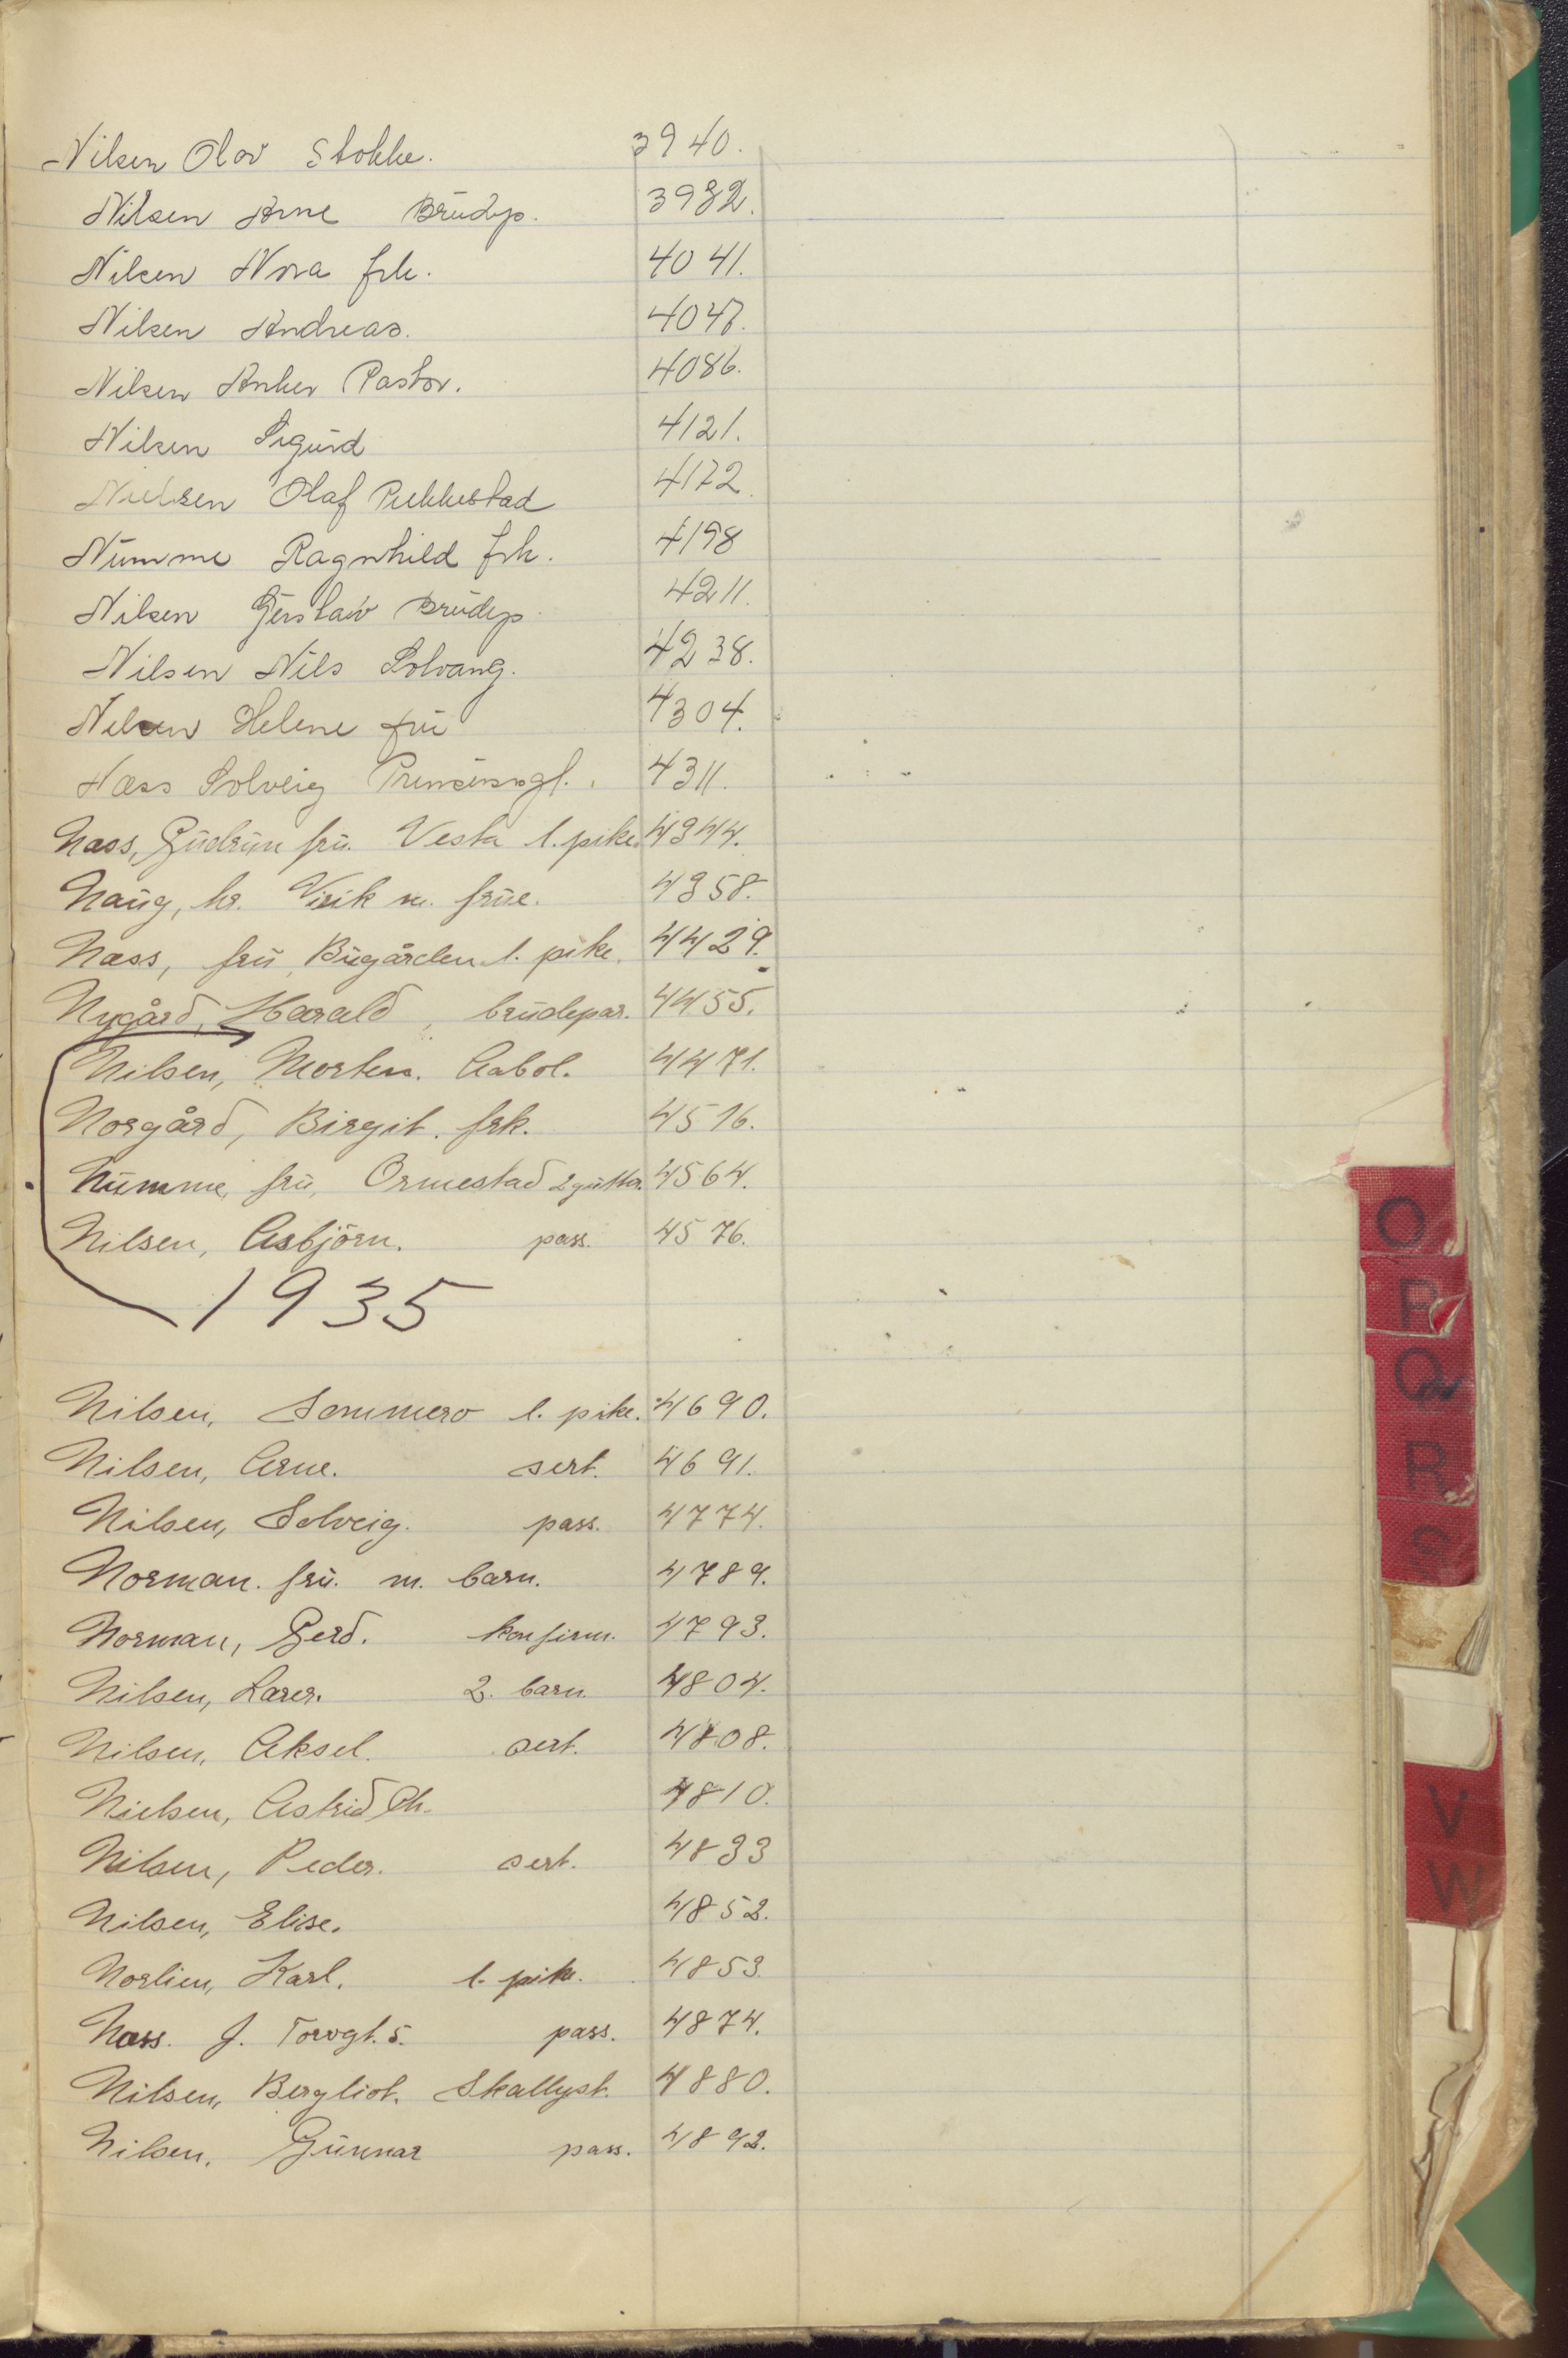 Nilsen Olav Stokke. 3940.
Nilsen Arne Brudep. 3982.
Nilsen Nora frk. 4041.
Nilsen Andreas. 4047.
Nilsen Anker Pastor. 4086.
Nilsen Sigurd 4121.
Nielsen Olaf Pukkestad 4172.
Numme Ragnhild frk. 4198
Nilsen Gustav Brudep 4211.
Nilsen Nils Solvang. 4238.
Nilsen Helene fru 4304.
Næss Solveig Prinsensgt. 4311.
Næss, Gudrun fru. Vesta l. pike. 4344.
Naug, hr. Virik m. frue. 4358.
Næss, fru, Bugården l. pike. 4429.
Nygård, Harald, brudepar. 4455.
Nilsen, Morten. Aabol. 4471.
Norgård, Birgit. frk. 4516.
Numme, fru, Ormestad 2 gutter. 4564.
Nilsen, Asbjörn. pass. 4576.
1935
Nilsen, Sommero l. pike. 4690.
Nilsen, Arne. sert. 4691.
Nilsen, Solveig. pass. 4774.
Norman. fru. m. barn. 4789.
Norman, Gerd. konfirm. 4793.
Nilsen, Lærer. 2. barn. 4804.
Nilsen, Aksel. sert. 4808.
Nielsen, Astrid Ch. 4810.
Nilsen, Peder. sert. 4833
Nilsen, Elise. 4852.
Norlien, Karl. l. pike. 4853.
Næss. J. Torvgt. 5. pass. 4874.
Nilsen, Bergliot. Skallyst. 4880.
Nilsen, Gunnar pass. 4892.
O
P
Q
R
S
V
W